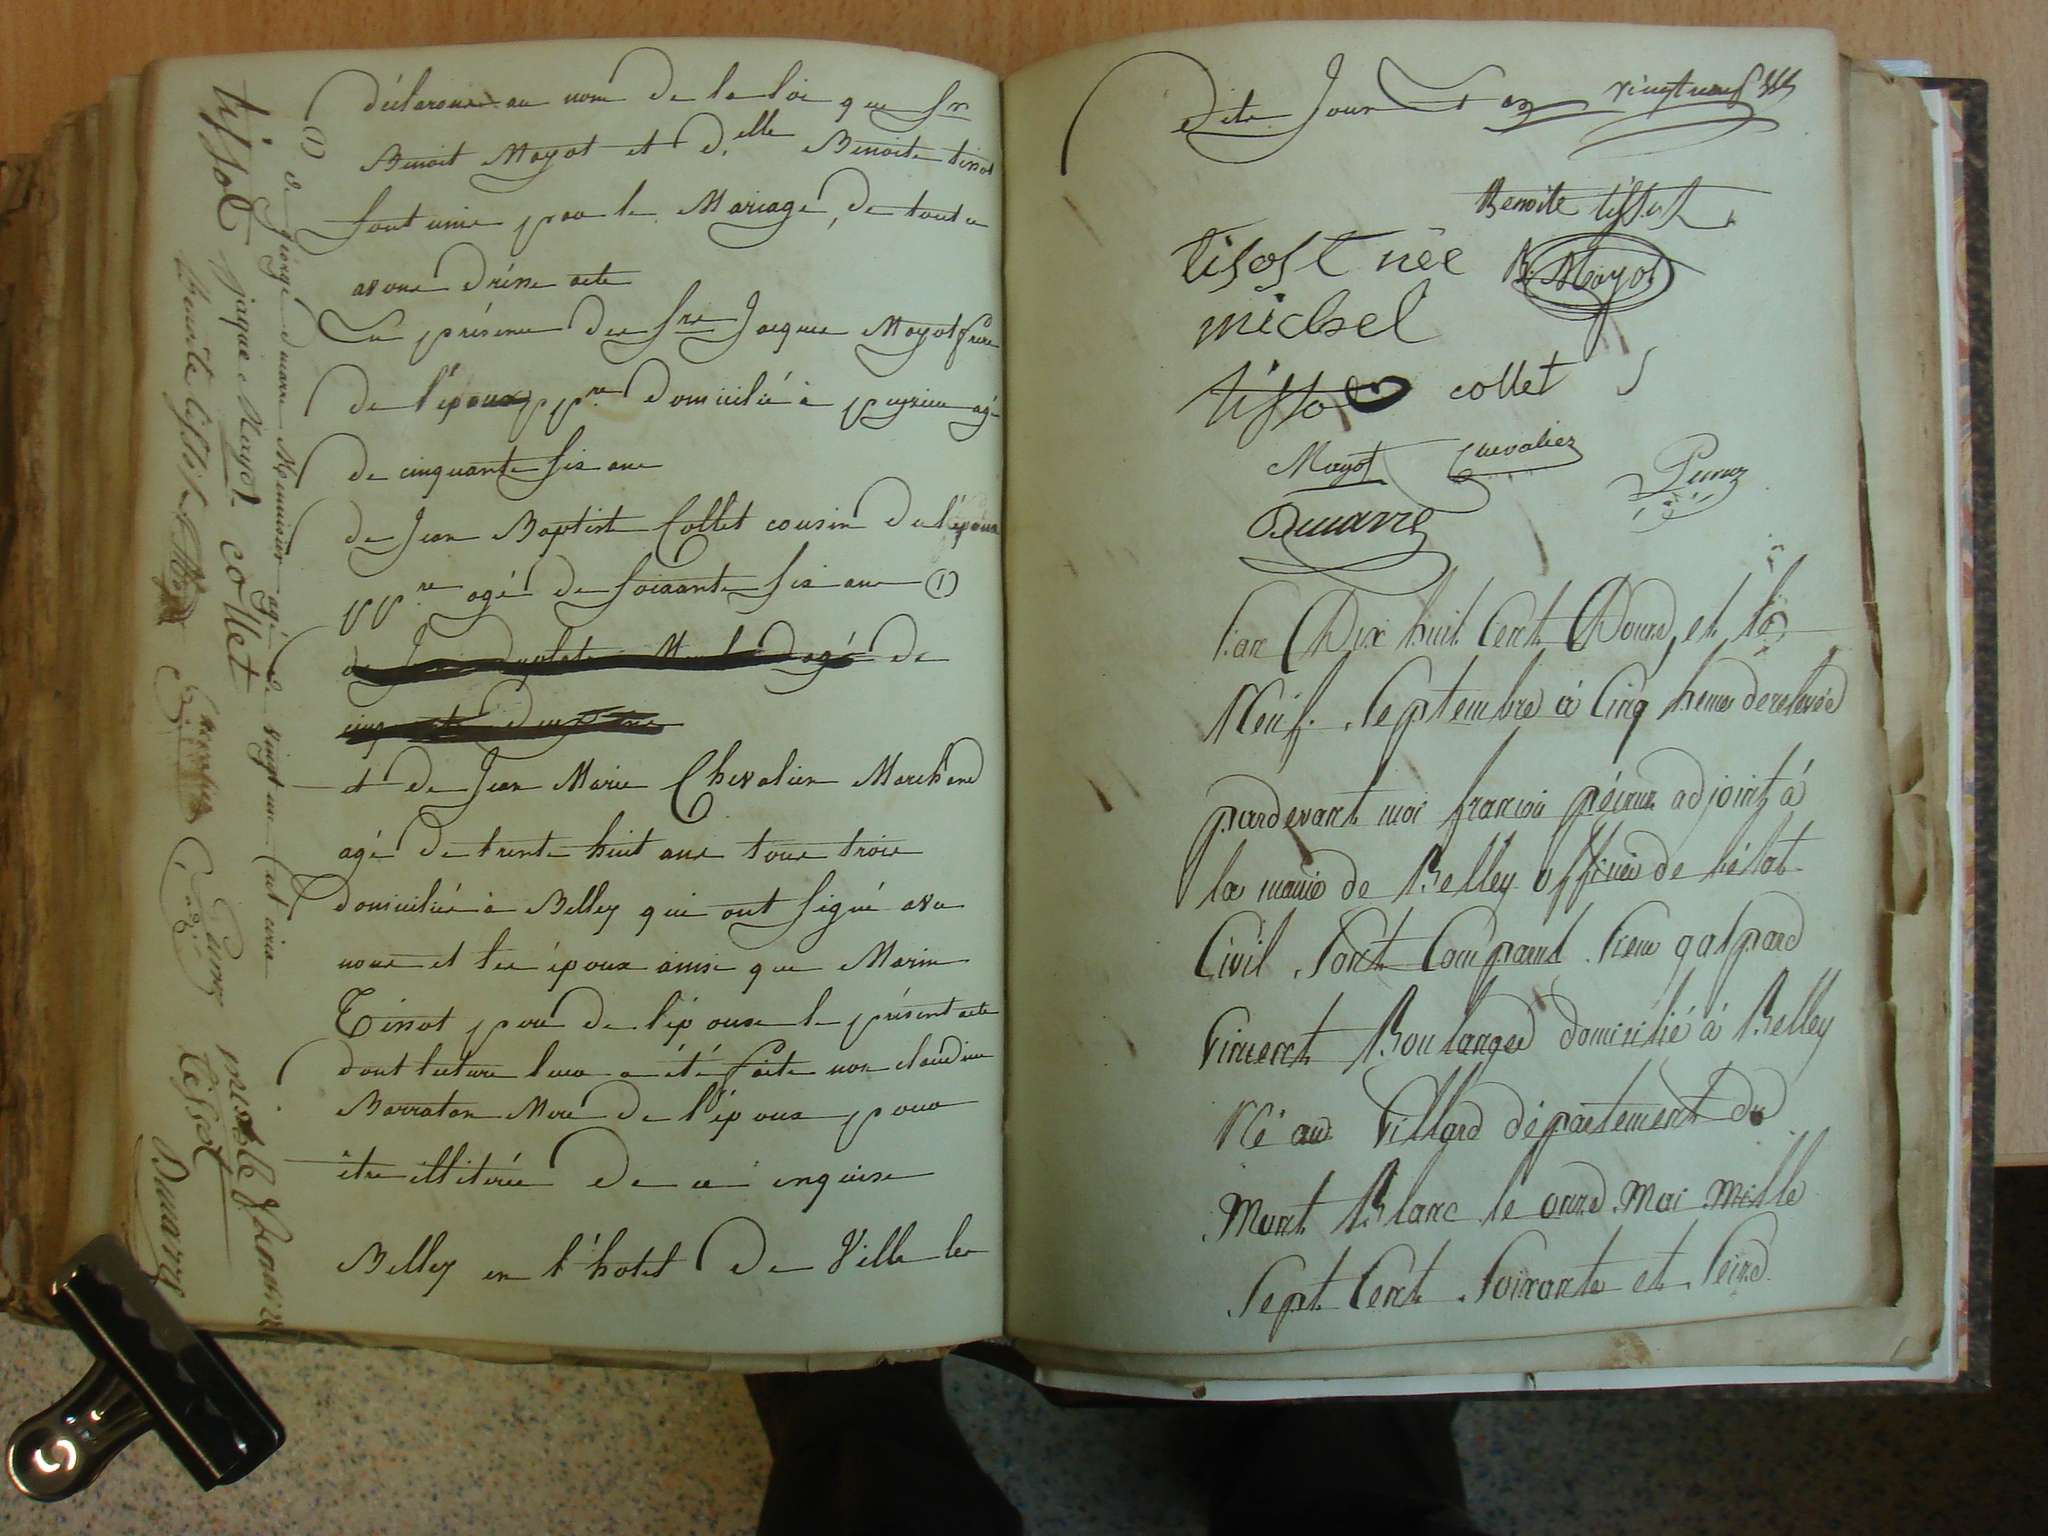 déclarons au nom de la loi que Sr.
Benoit Mayot et D.elle Benoite tissot
sont unis pour le Mariage, de tout ce
avons dréssé acte
En présence des Srs Jacques Mayot frere
de l'époux ppre. domicilié à peyrieu agé
de cinquante six ans
de Jean Baptist Collet cousin de l'époux
ppre. agé de soixante six ans (1)
de
et de Jean Marie Chevalier Marchand
agé de trente huit ans tous trois
domiciliés à Belley qui ont signé avec
nous et les époux ainsi que Marin
Tissot pere de l'épouse le présent acte
dont lecture leur a été faite non claudine
Barratan Mere de l'époux pour
être illitérée de ce enquise
Belley en l'hotel de Ville les
(1) de George Duarre Menuisier agé de vingt un
tissot jaque Mayot collet
benoite tissot
tissot Dunarre
dite Jour et an vingt neuf
Benoite tissot
tisost née B. Mayot
michel
tissot collet
Mayot Chevalier
Dunarre
L'an Dix huit Cent Douze, et le
Neuf. Septembre à Cinq heures de relevée
pardevant moi françois péirus adjoint à
la mairie de Belley officier de l'état
Civil. Sont Comparus Sieur gaspard
Vincent Boulanger domicilié à Belley
Né au Villard département du
Mont Blanc le onze Mai mille
Sept Cent Soixante et Seize